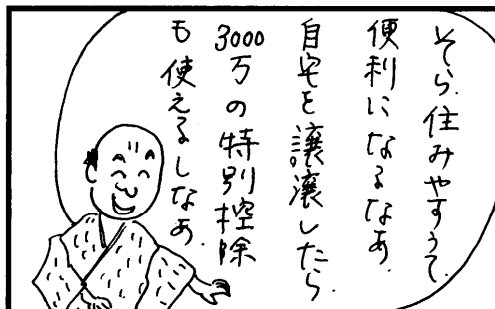 そら、住みやすうて、
便利になるなあ、
自宅を譲渡したら、
3000万の特別控除
も使えるしなあ、